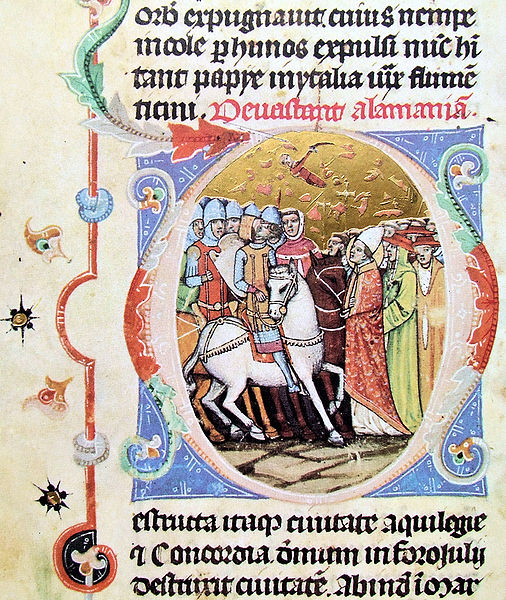 orb̄ expugnauit cuius nempe
incole ꝑ hunos expulsi nūc hi
tant papye inytalia iux̄ flumē
ticini. Deuastant alamaniā.
estructa itaqꝫ ciuitate aquilegie
⁊ Concordia. om̄ium in forojuly
destruxit ciuitatē. Abinđ i mar